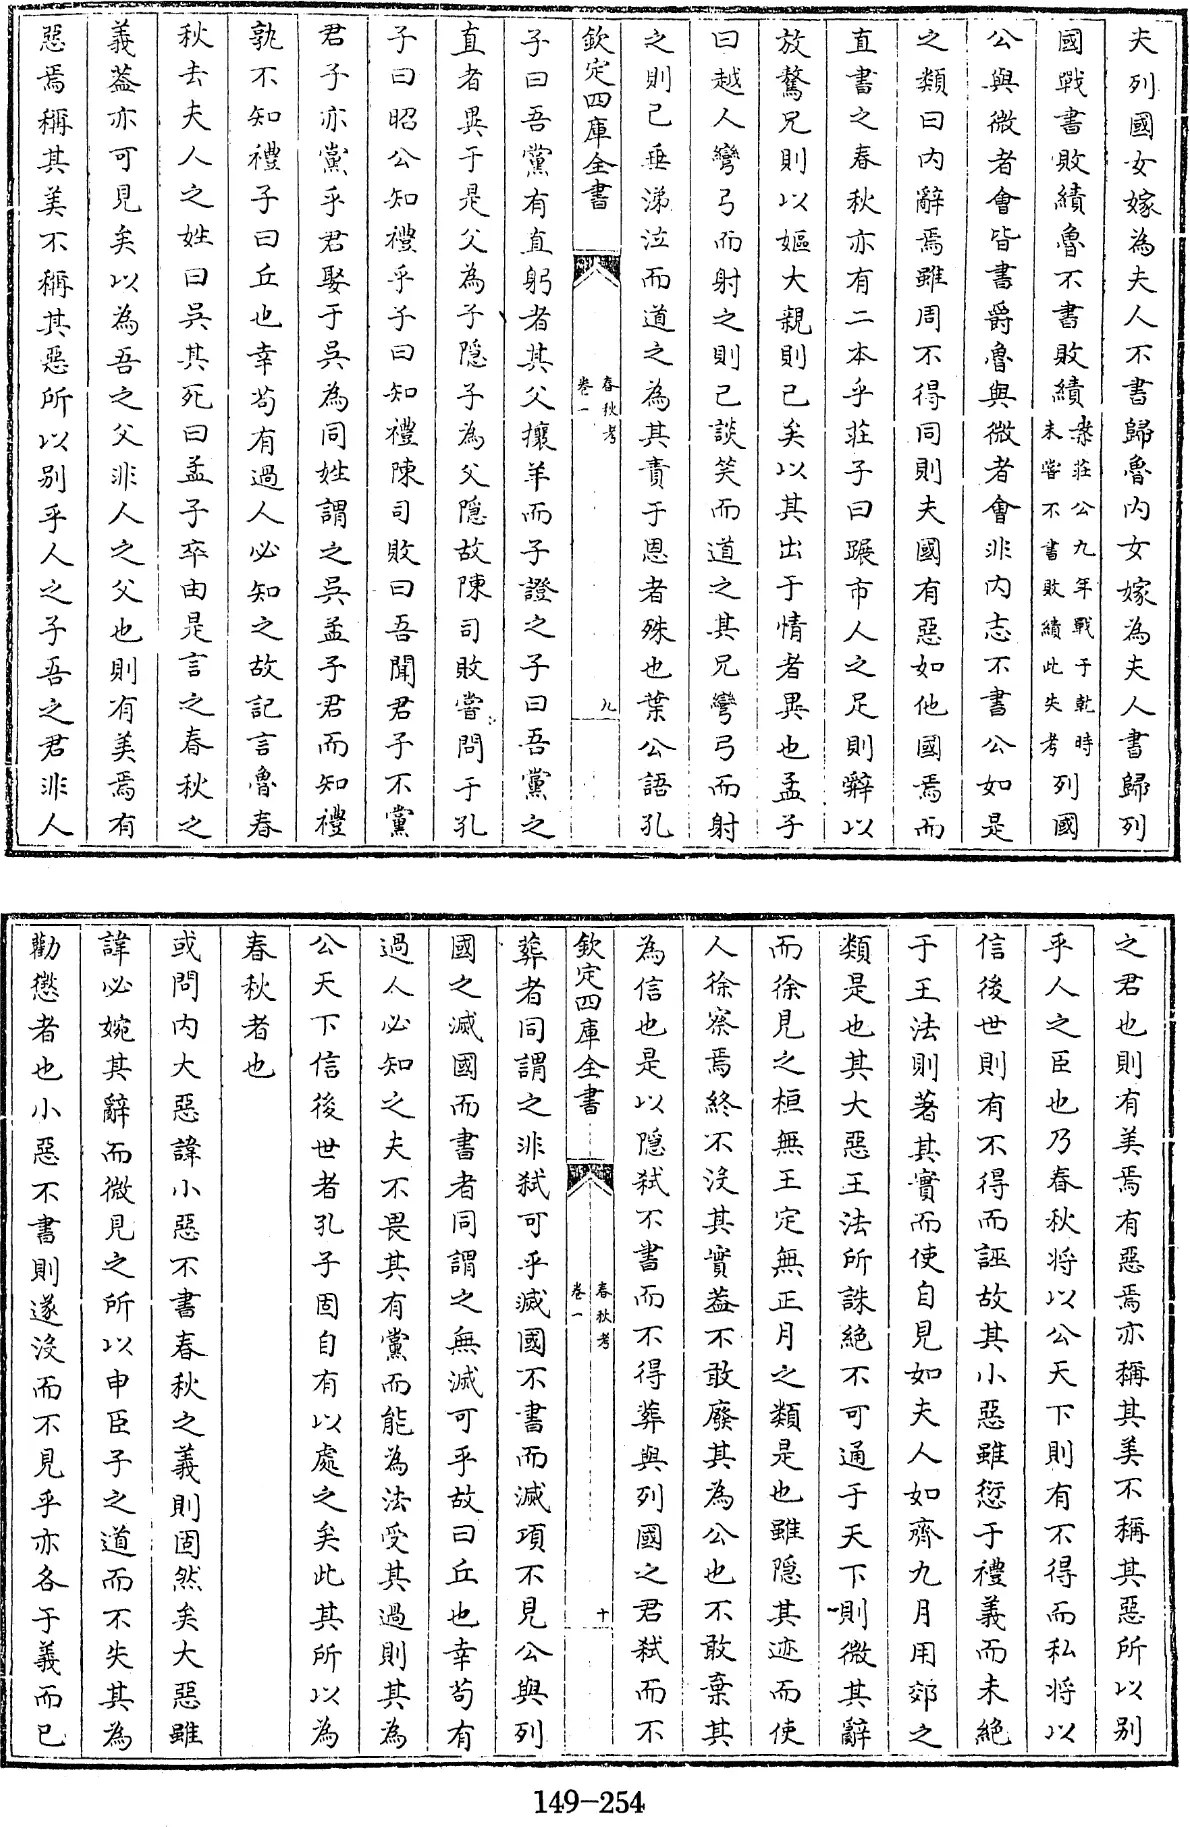 夫列國女嫁為夫人不書歸魯内女嫁為夫人書歸列
國戰書敗績魯不書敗績案莊公九年戰于乾時未嘗不書敗績此失考列國
公與微者會皆書爵魯與微者會非内志不書公如是
之類曰内辭焉雖周不得同則夫國有惡如他國焉而
直書之春秋亦有二本乎莊子曰蹍市人之足則辭以
放驁兄則以嫗大親則已矣以其出于情者異也孟子
曰越人彎弓而射之則已談笑而道之其兄彎弓而射
之則已垂涕泣而道之為其責于恩者殊也葉公語孔
欽定四庫全書
春秋考
卷一
九
子曰吾黨有直躬者其父攘羊而子證之子曰吾黨之
直者異于是父為子隱子為父隱故陳司敗嘗問于孔
子曰昭公知禮乎子曰知禮陳司敗曰吾聞君子不黨
君子亦黨乎君娶于吳為同姓謂之吳孟子君而知禮
孰不知禮子曰丘也幸茍有過人必知之故記言魯春
秋去夫人之姓曰吳其死曰孟子卒由是言之春秋之
義葢亦可見矣以為吾之父非人之父也則有美焉有
惡焉稱其美不稱其惡所以别乎人之子吾之君非人
之君也則有美焉有惡焉亦稱其美不稱其惡所以别
乎人之臣也乃春秋将以公天下則有不得而私将以
信後世則有不得而誣故其小惡雖愆于禮義而未絶
于王法則著其實而使自見如夫人如齊九月用郊之
類是也其大惡王法所誅絶不可通于天下則微其辭
而徐見之桓無王定無正月之類是也雖隱其迹而使
人徐察焉終不没其實葢不敢廢其為公也不敢棄其
為信也是以隱弑不書而不得葬與列國之君弑而不
欽定四庫全書
春秋考
卷一
十
葬者同謂之非弑可乎滅國不書而滅項不見公與列
國之滅國而書者同謂之無滅可乎故曰丘也幸茍有
過人必知之夫不畏其有黨而能為法受其過則其為
公天下信後世者孔子固自有以處之矣此其所以為
春秋者也
或問内大惡諱小惡不書春秋之義則固然矣大惡雖
諱必婉其辭而微見之所以申臣子之道而不失其為
勸懲者也小惡不書則遂没而不見乎亦各于義而已
149-254